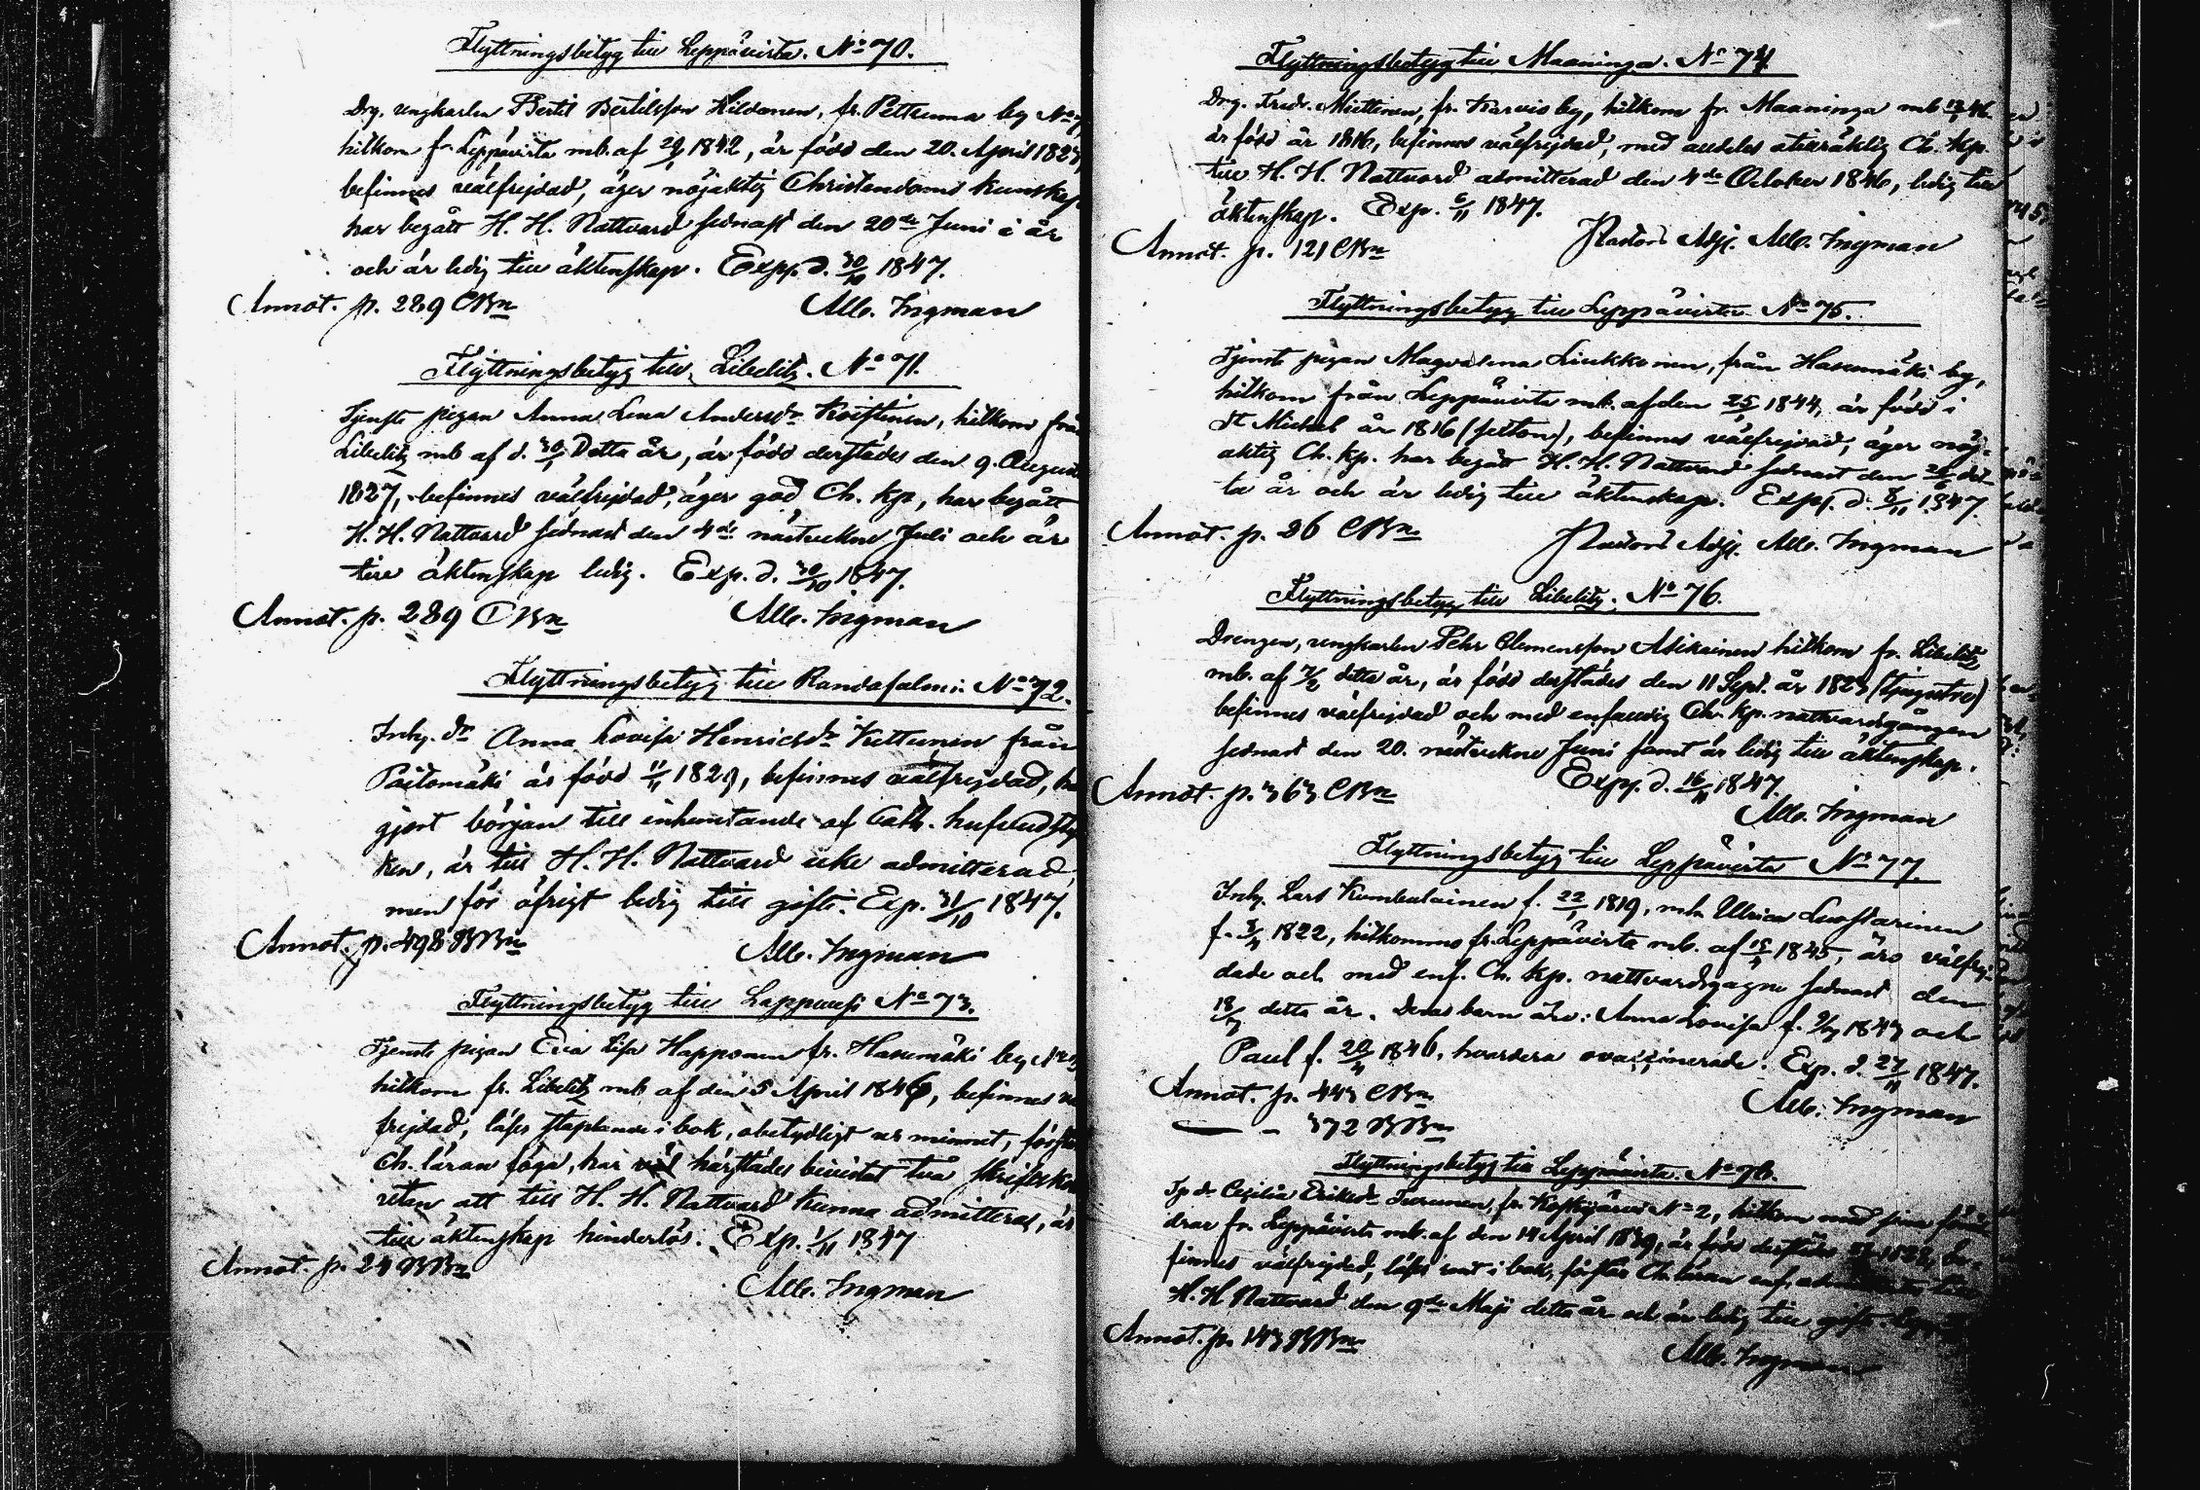 Flyttningsbetyg till Leppävirta. No 70.
Drg. ungkarlen Bertil Bertilsson Hildonen, fr. Pettruma by No
hitkom fr. Leppävirta mb. af 1842, är född den 20. April 182
befinnes välfrejdad, äger nöjaktig Christendoms kunskap
har begått H. H. Nattvard sednast den 20de Juni i år
och är ledig till äktenskap. Exp. d. 30/10 1847.
Annot. p. 289 CBn
Alb. Ingman
Flyttningsbetyg till Libelitz. No 71.
Tjenste pigan Anna Lena Andersdr Koistinen, hitkom från
Libelitz mb af d. detta år, är född derstädes den 9. Augusti
1827, befinnes välfrejdad, äger god Ch. kp, har begått
H. H. Nattvard sednast den 4de nästvekne Juli och är
till äktenskap ledig. Exp. d. 30/10 1847.
Annot. p. 289 CBn
Alb. Ingman
Flyttningsbetyg till Randasalmi No 72.
Inhs. dr Anna Lovisa Henricsdr Kettunen från
är född 1829, befinnes välfrejdad, ha
gjort början till inhemtande af Cath. hufvudsty
ken, är till H. H. Nattvard icke admitterad,
men för öfrigt ledig till gifte. Exp. 31/10 1847.
Annot. p. 498 BBn
Alb. Ingman
Flyttningsbetyg till No 73.
Tjenste pigan Eva Lisa Happonen fr. Hasumäki by No
hitkom fr. Libelitz mb af den 5 April 1846, befinnes väl
frejdad, läser staplande i bok, obetydligt ur minnet, förstår
Ch. läran föga, har härstädes bivistat två skriftskol
utan att till H. H. Nattvard kunna admitteras, är
till äktenskap hinderlös. Exp. 1/11 1847
Annot. p. 24 BBn
Alb. Ingman
Flyttningsbetyg till Maaninga. No 74
Drg. Fredr. Miettinen, fr. Karvio by, hitkom fr. Maaninga mb 46.
är född år 1816, befinnes välfrejdad, med Ch. kp.
till H. H. Nattvard admitterad den 4de October 1846, ledig till
äktenskap. Exp. 6/11 1847.
Annot. p. 121 CBn
Pastors Adj. Alb. Ingman
Flyttningsbetyg till Leppävirta No 75.
Tjenste pigan Magdalena Liukkonen, från Hasumäki by,
hitkom från Leppävirta mb. af den 1844, är född i
St Michel år 1816 (sexton), befinnes välfrejdad, äger nöj-
aktig Ch. kp. har begått H. H. Nattvard sednast den det-
ta år och är ledig till äktenskap. Exp. d. 8/11 1847.
Annot. p. 26 CBn
Pastors Adj. Alb. Ingman
Flyttningsbetyg till Libelitz. No 76.
Drengen, ungkarlen Pehr Clemensson Asikainen hitkom fr. Libelitz
mb. af detta år, är född derstädes den 11 Sept. år 1823 (tjugutre)
befinnes välfrejdad och med enfaldig Ch. kp. nattvardsgången
sednast den 20. nästvekne Juni samt är ledig till äktenskap.
Exp. d. 16/11 1847.
Annot. p. 363 CBn
Alb. Ingman
Flyttningsbetyg till Leppävirta No 77.
Inhs. Lars f. 22/1 1819, mh Ulrica
f. 1822, hitkomne fr. Leppävirta mb. af 1845, äro välfrej-
dade och med enf. Ch. kp. nattvardsgagne sednast den
18/7 detta år. Deras barn äro: Anna Lovisa f. 1843 och
Paul f. 20/4 1846, hvardera ovaccinerade. Exp. d. 27/11 1847.
Annot. p. 443 CBn
— - 372 BBn
Alb. Ingman
Flyttningsbetyg till Leppävirta. No 78.
Cecilia Eriksdr Turunen, fr. No 2, hitkom med sina föräl
drar fr. Leppävirta mb. af den 14 April 1839, är född derstädes be-
finnes välfrejdad, läser rent i bok, förstår Ch. läran enf.
H. H Nattvard den 9de Maji detta år och är ledig till gifte
Annot. p. 143 BBn
Alb. Ingman